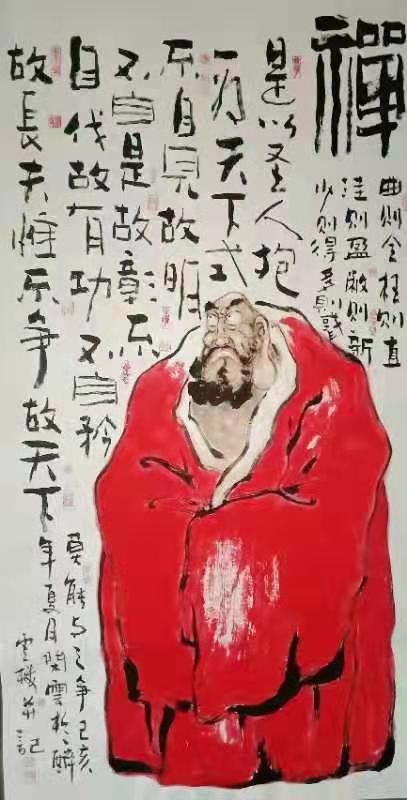 禪
曲则全枉则直
洼则盈敝则新
少则得多则惑
是以圣人抱
一为天下式
不自見故明
不自是故彰不
自伐故有功不自矜
故長夫惟不争故天下
莫能与之争己亥
年夏月閑雲於醉
雲楼并记